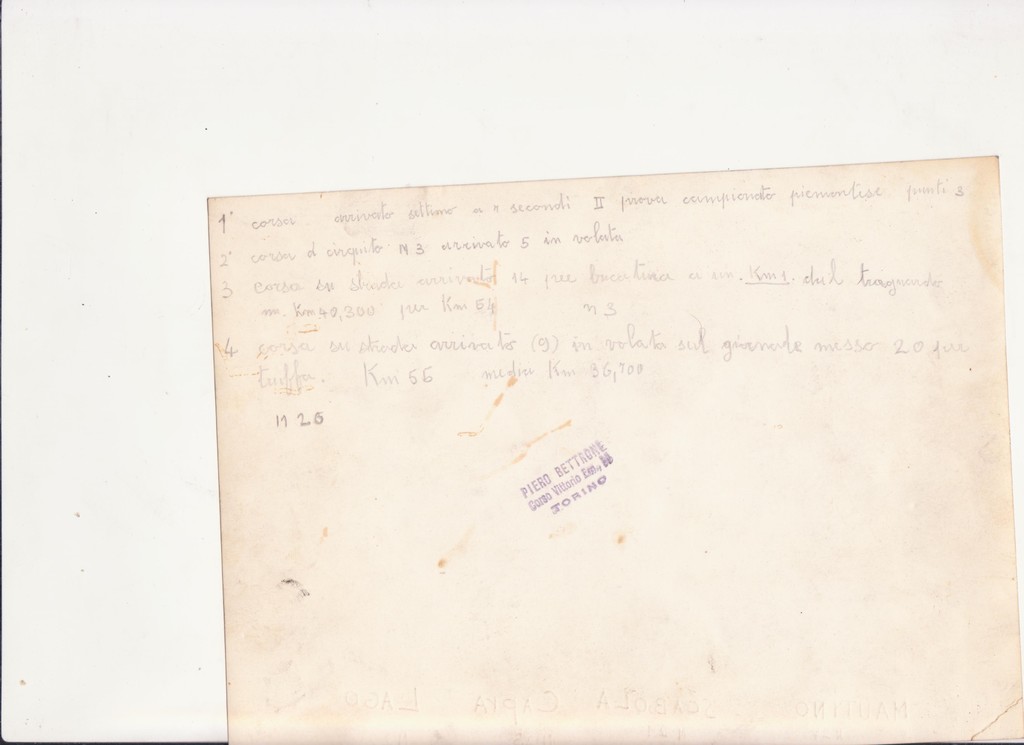 1° corsa arrivato settimo a " secondi II prova campionato piemontese punti 3
2° corsa d cirquito N 3 arrivato 5 in volata
3 corsa su strada arrivato 14 per bucatina a un. Km 1. dal traguardo
m. Km 40,300 per Km 54 n 3
4 corsa su strada arrivato (9) in volata sul giornale messo 20 per
truffa. Km 56 media Km 36,700
N 26
PIERO BETTRONE
Corso Vittorio Em.,
TORINO
MAULINO SGARBOLA CAPRA LAGO